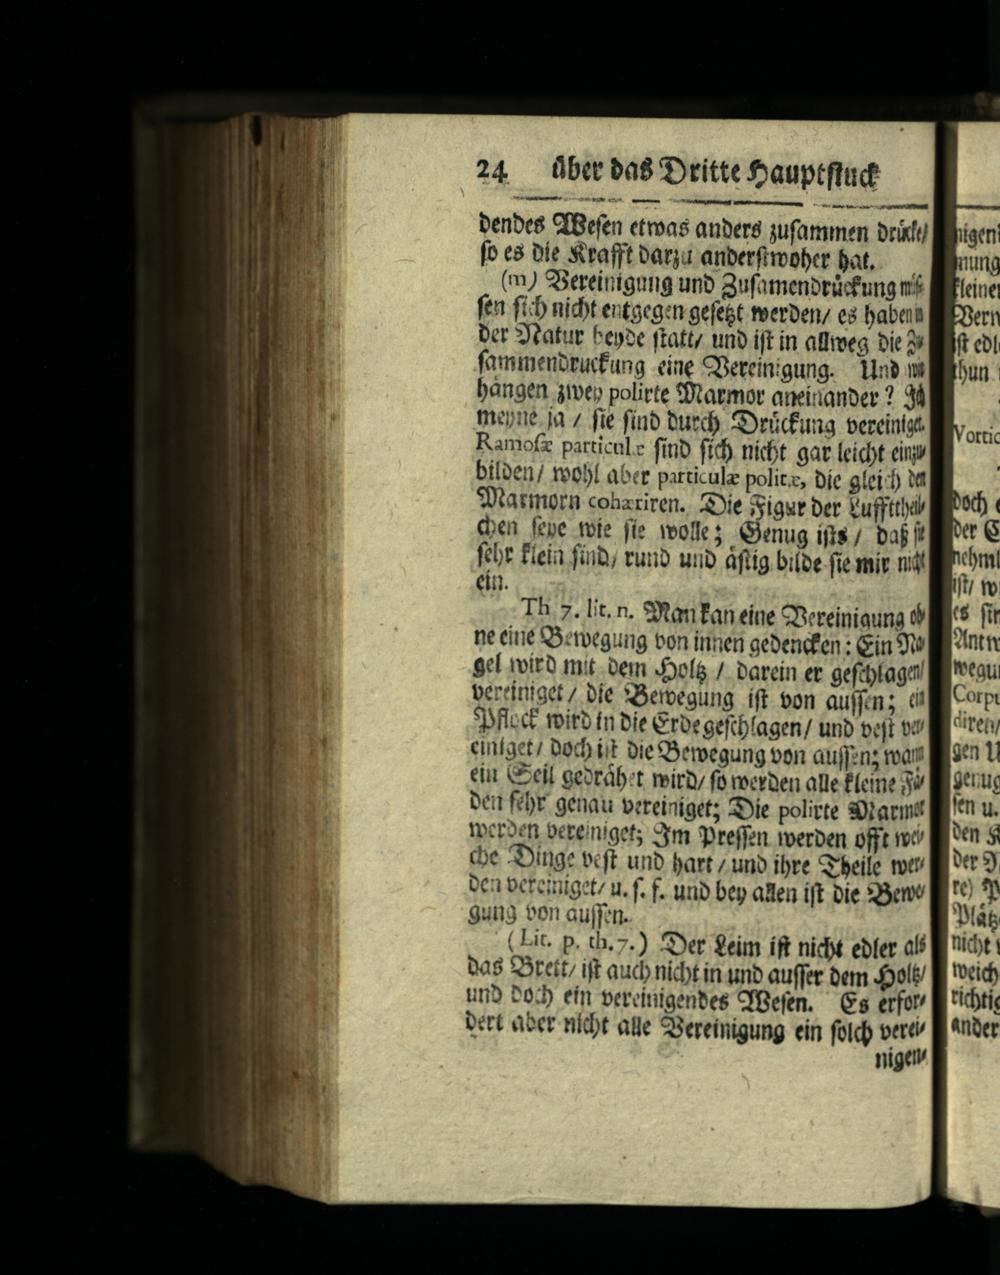 24 über das Dritte Hauptstuck
dendes Wesen etwas anders zusammen drücke/
so es die Krafft darzu anderstwoher hat.
(m) Vereinigung und Zusamendrückung müs-
sen sich nicht entgegen gesetzt werden/ es haben in
der Natur beyde statt/ und ist in allweg die Zu-
sammendruckung eine Vereinigung. Und wie
hangen zwey polirte Marmor aneinander? Ich
meyne ja / sie sind durch Drückung vereiniget.
Ramosæ particulæ sind sich nicht gar leicht einzu-
bilden/ wohl aber particulæ politæ, die gleich den
Marmorn cohæriren. Die Figur der Lufftheil-
chen seye wie sie wolle; Genug ists/ daß sie
sehr klein sind/ rund und ästig bilde sie mir nicht
ein.
Th 7. lit. n. Man kan eine Vereinigung oh-
ne eine Bewegung von innen gedencken: Ein Na-
gel wird mit dem Holtz / darein er geschlagen/
vereiniget/ die Bewegung ist von aussen; ein
Pflock wird in die Erde geschlagen/ und vest ver-
einiget/ doch ist die Bewegung von aussen; wann
ein Seil gedrähet wird/ so werden alle kleine Fä-
den sehr genau vereiniget; Die polirte Marmor
werden vereiniget; Im Pressen werden offt wei-
che Dinge vest und hart / und ihre Theile wer-
den vereiniget/ u. s. f. und bey allen ist die Bewe-
gung von aussen.
(Lit. p. th. 7.) Der Leim ist nicht edler als
das Brett/ ist auch nicht in und ausser dem Holtz/
und doch ein vereinigendes Wesen. Es erfor-
dert aber nicht alle Vereinigung ein solch verei-
nigen-